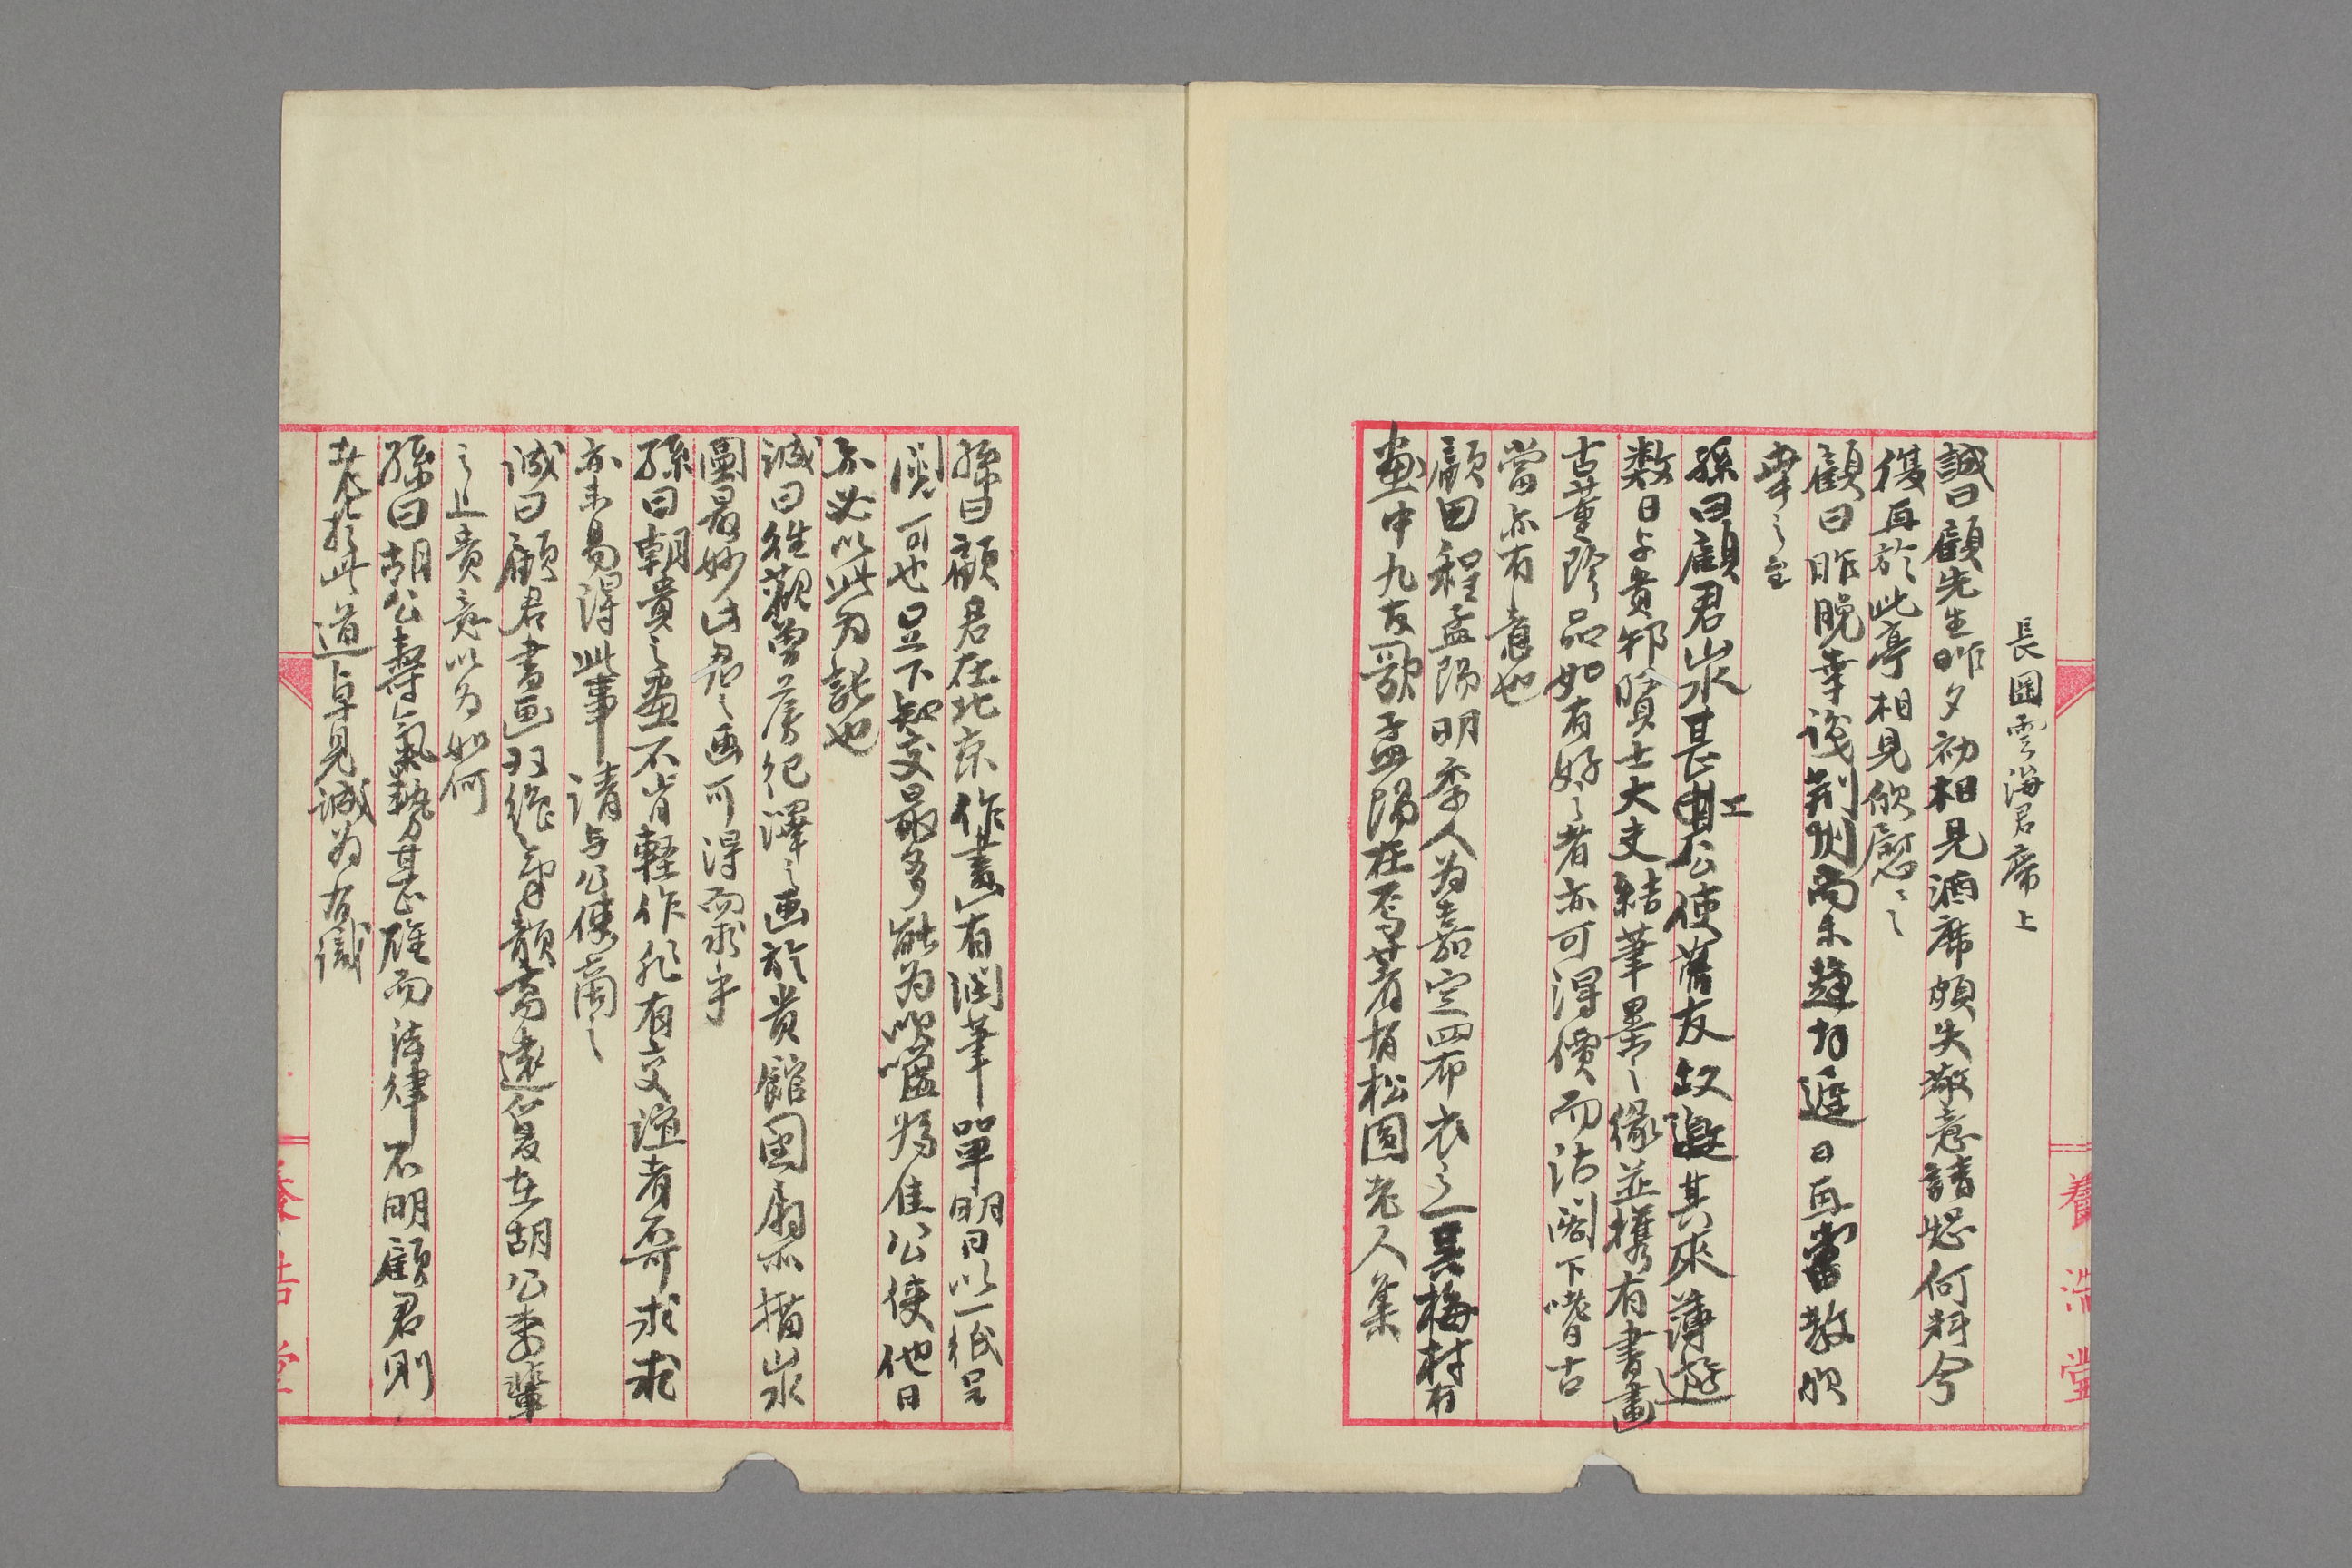 長岡雲海君席上
誠曰顧先生昨夕初相見酒席頗失敬意請恕何料今
復再於此亭相見欣慰〻
顧曰昨晚幸識荆州尚未趨拜遲日再當敎欣
幸之至
孫曰顧君山水甚工公使舊友故邀其來薄遊
数日与貴邦賢士大夫結筆墨之緣並携有書畫
古董珍品如有好之者亦可得價而沽閣下嗜古
當亦有意也
顧曰程孟陽明季人为嘉定四布衣之一吳梅村有
畫中九友歌孟陽在焉著有松圓老人集
孫曰顧君在北京作畫有潤筆單明日以一紙呈
閱可也足下知交最多能为吹噓為佳公使他日
亦必以此为託也
誠曰徃觀曽根紀澤之画於貴館團扇亦描山水
圖最妙此君之画可得而求乎
孫曰朝貴之畫不肯軽作非有交誼者不可求求
亦未易得此事請与公使商之
誠曰顧君書画双絶氣韻高遠復在胡公壽輩
之上貴意以为如何
孫曰胡公壽氣勢甚雄而法律不明顧君則
老於此道卓見誠为有識
養浩堂
養浩堂